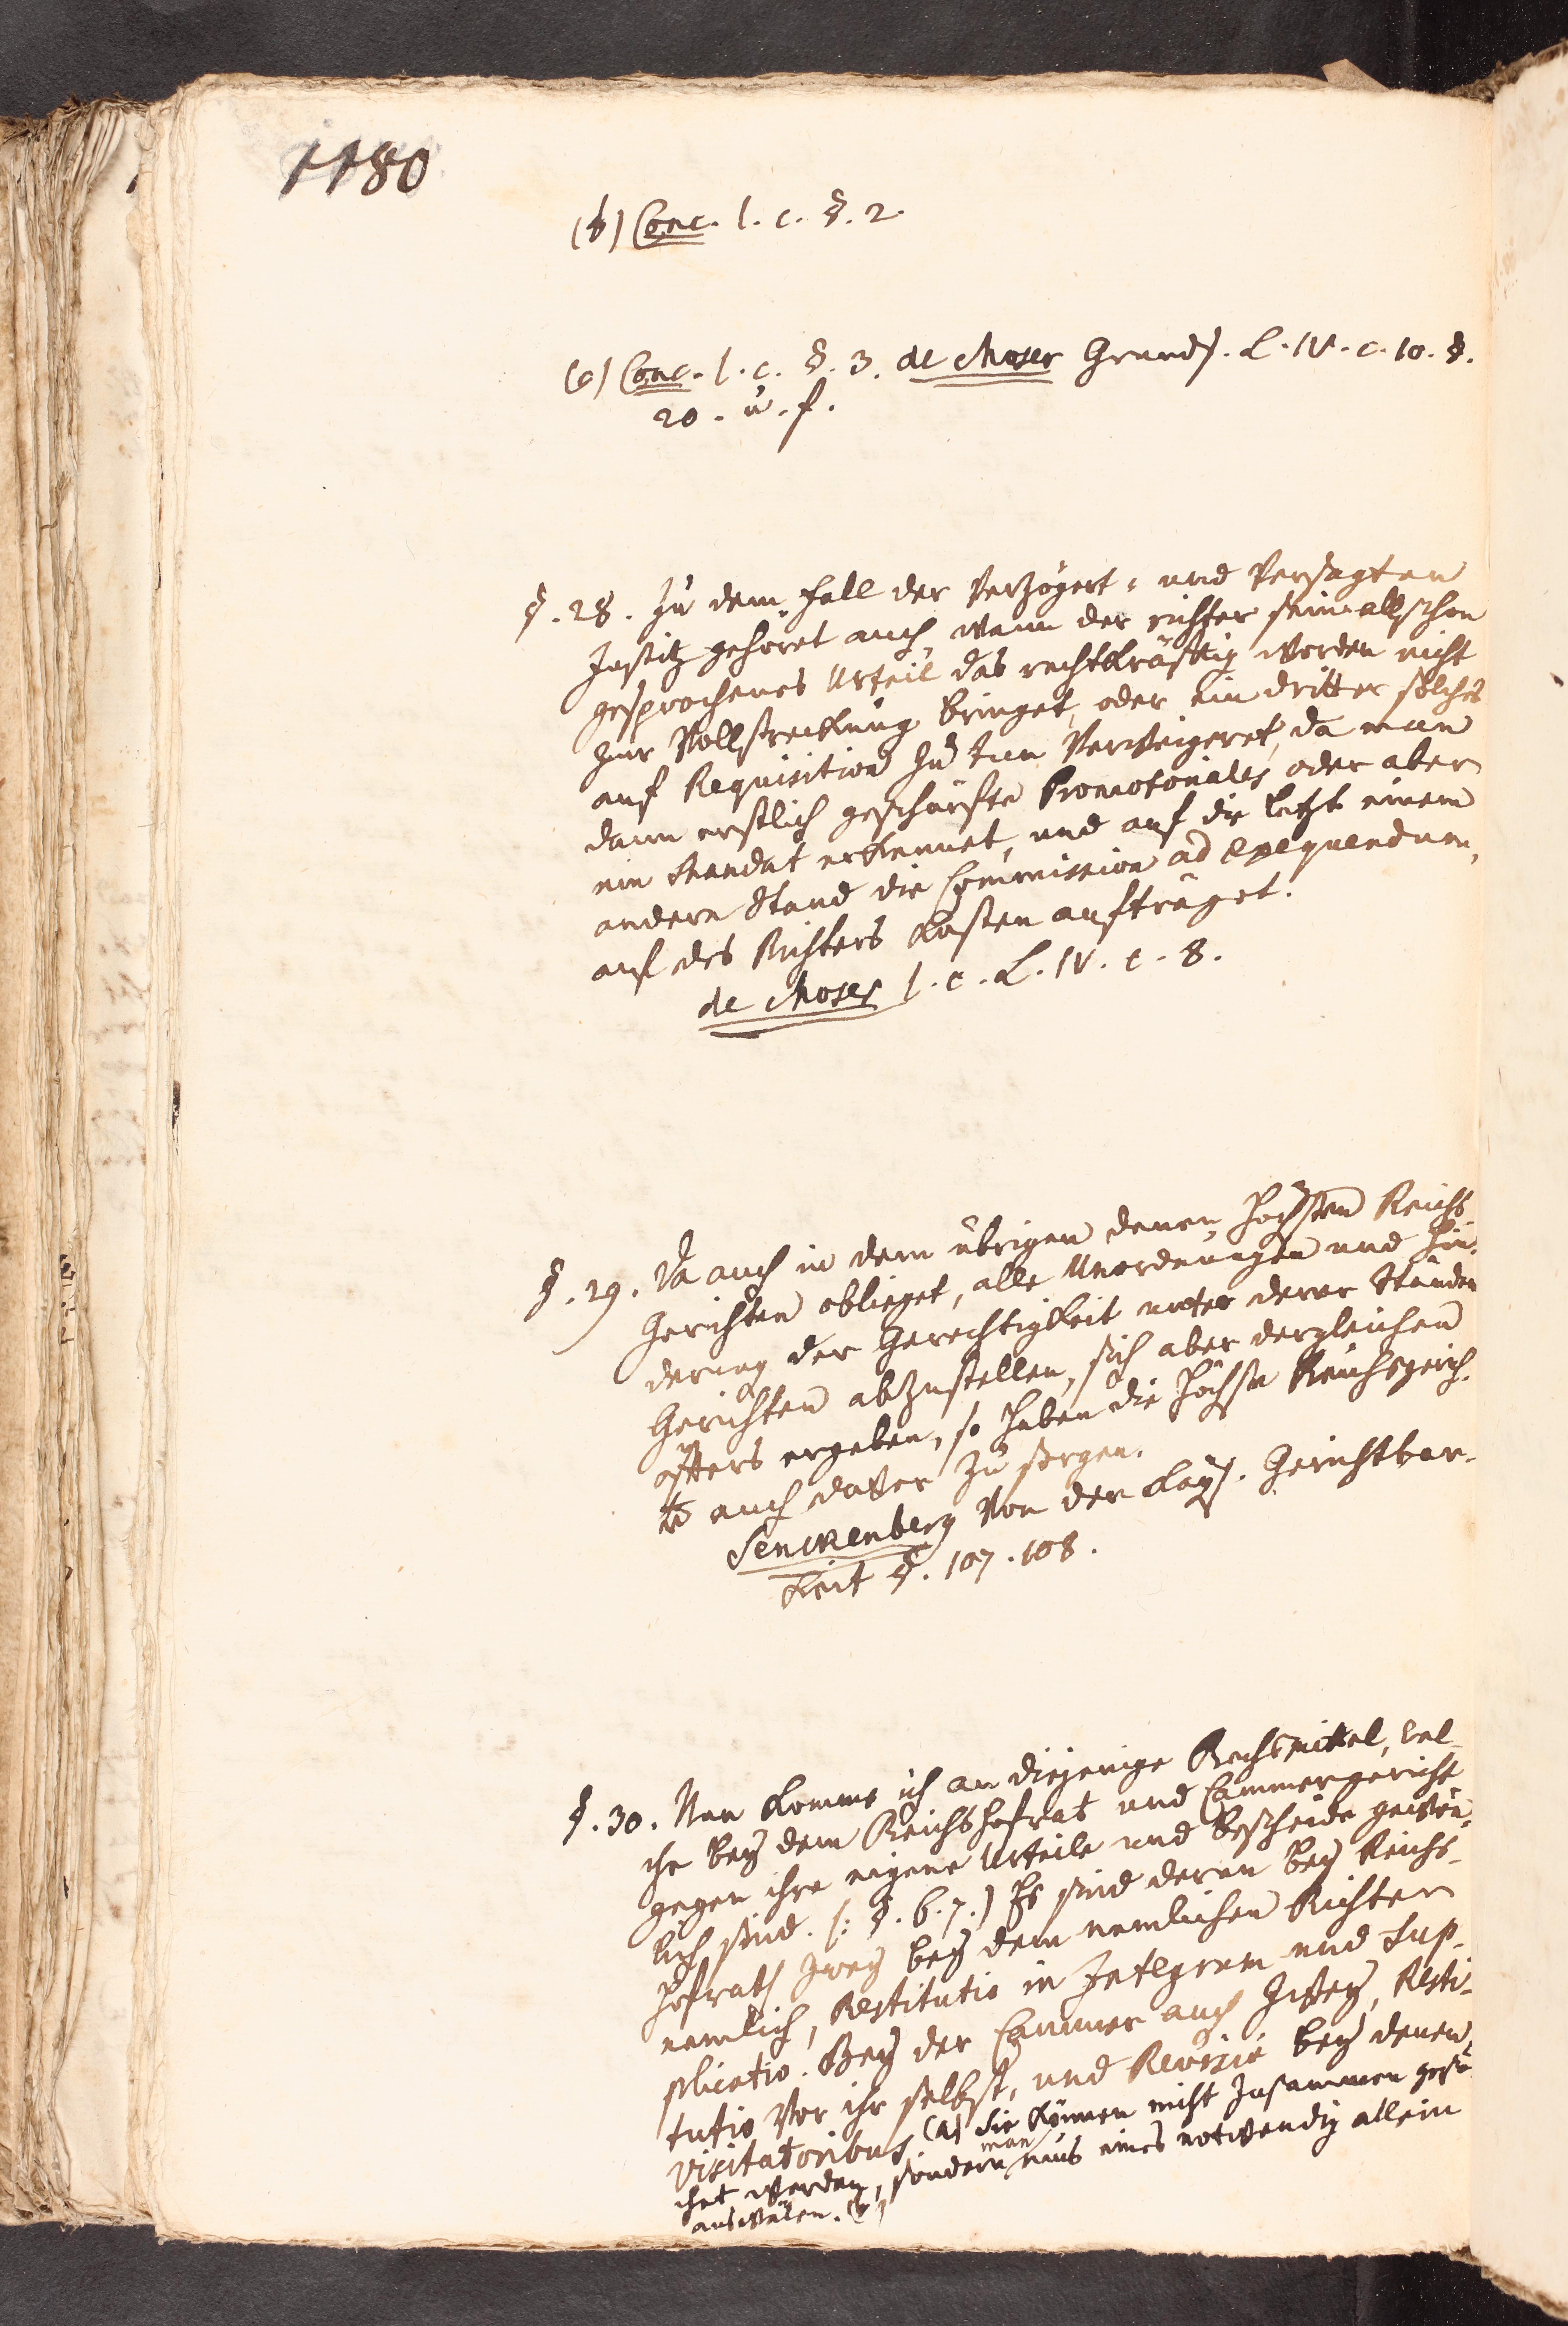 1180
(b) Conc. l. c. §. 2.
(c) Conc. l. c. §. 3. de Moser Grunds. L. IV. c. 10. §.
20. u. f.
§. 28. Zu dem Fall der Verzögert- und Versagten
Justitz gehöret auch, wann der richter sein allschon
gesprochenes Urteil das rechtkräftig worden nicht
zur Vollstreckung bringet, oder ein dritter solches
auf Requisition zu tun Verweigeret, da man
dann erstlich geschärfte Promotoriales oder aber
ein Mandat erkennet, und auf die letzt einem
andern Stand die Commission ad exequendum,
auf des Richters Kosten aufträget.
de Moser l. c. L. IV. c. 8.
§. 29. Da auch in dem übrigen denen Höchsten Reichs
Gerichten oblieget, alle Unordnungen und Hin-
derung der Gerechtigkeit unter derer Ständen
Gerichten abzustellen, sich aber dergleichen
öfters ergeben, so haben die Höchste Reichsgerich-
te auch davor zu sorgen.
Senckenberg Von der Kays. Gerichtbar-
keit §. 107. 108.
§. 30. Nun komme ich an diejenige Rechsmittel, wel-
che bey dem Reichshofrat und Cammergericht
gegen ihre eigene Urteile und bescheide gewön-
lich sind. (: §. 6. 7.) Es sind deren bey Reichs-
Hofrath zwey bey dem nemlichen Richter
nemlich, Restitutio in Integrum und Sup-
plicatio. Bey der Cammer auch zwey, Resti-
tutio Vor ihr selbst, und Revisio bey denen
visitatoribus. (a) Sie können nicht zusammen gesu-
chet werden, sondern man mus eines notwendig allein
auswälen. (b)